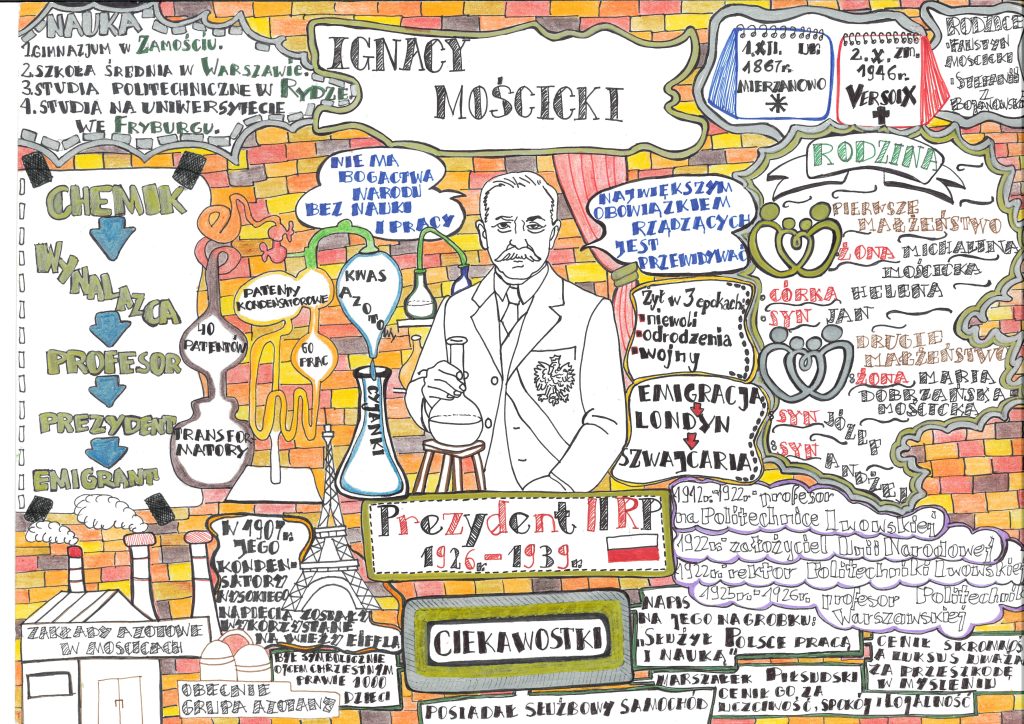 NAUKA
1. GIMNAZJUM W ZAMOŚCIU.
2. SZKOŁA ŚREDNIA W WARSZAWIE.
3. STUDIA POLITECHNICZNE W RYDZE
4. STUDIA NA UNIWERSYTECIE
WE FRYBURGU.
IGNACY
MOŚCICKI
1.XII.
1867r.
MIERZANOWO
2.X. zm.
1946r.
VERSOIX
RODZICE
FAUSTYN
MOŚCICKI
STEFANIA
Z
BOJANOWSKICH
CHEMIK
WYNALAZCA
PROFESOR
PREZYDENT
EMIGRANT
NIE MA
BOGACTWA
NARODU
BEZ NAUKI
I PRACY
PATENTY
KONDENSATOROWE
KWAS
AZOTOWY
40
PATENTÓW
60
PRAC
TRANSFOR
MATORY
CYJANKI
NAJWIĘKSZYM
OBOWIĄZKIEM
RZĄDZĄCYCH
JEST
PRZEWIDYWAĆ
Żył w 3 epokach:
niewoli
odrodzenia
wojny
EMIGRACJA
LONDYN
SZWAJCARIA
RODZINA
PIERWSZE
MAŁŻEŃSTWO
ŻONA MICHALINA
MOŚCICKA
CÓRKA HELENA
SYN JAN
DRUGIE
MAŁŻEŃSTWO
ŻONA MARIA
DOBRZAŃSKA-
MOŚCICKA
SYN JÓZEF
SYN ANDRZEJ
Prezydent II RP
1926r. - 1939r.
1912r.-1922r. profesor
na Politechnice Lwowskiej
1922r. założyciel Unii Narodowej
1922r. rektor Politechniki Lwowskiej
1925r.-1926r. profesor Politechniki
Warszawskiej
W 1907r.
JEGO
KONDEN-
SATORY
WYSOKIEGO
NAPIĘCIA ZOSTAŁY
WYKORZYSTANE
NA WIEŻY EIFFLA
ZAKŁADY AZOTOWE
W MOŚCICACH
OBECNIE
GRUPA AZOTANY
BYŁ SYMBOLICZNIE
OJCEM CHRZESTNYM
PRAWIE 1000
DZIECI
CIEKAWOSTKI
POSIADAŁ SŁUŻBOWY SAMOCHÓD
NAPIS
NA JEGO NAGROBKU:
„SŁUŻYŁ POLSCE PRACĄ
I NAUKĄ"
MARSZAŁEK PIŁSUDSKI
CENIŁ GO ZA
UCZCIWOŚĆ, SPOKÓJ I LOJALNOŚĆ
CENIŁ SKROMNOŚĆ
A LUKSUS UWAŻAŁ
ZA PRZESZKODĘ
W MYŚLENIU